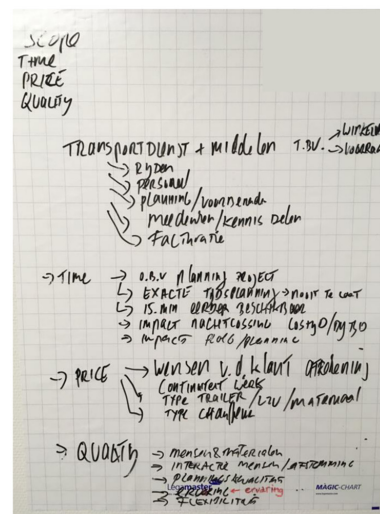 SCOPE
TIME
PRIZE
QUALITY
TRANSPORTDIENST + MIDDELEN T.B.V. → WINKEL
→ VOORRAA
→ RIJDEN
→ PERSONEEL
→ PLANNING/
→ MEEDENKEN/KENNIS DELEN
→ FACTURATIE
→ TIME → O.B.V PLANNING PROJECT
→ EXACTE TIJDSPLANNING → NOOIT TE LAAT
→ 15.MIN EERDER BESCHIKBAAR
→ IMPACT NACHTLOSSING
→ IMPACT /PLANNING
→ PRICE → WENSEN V.D. KLANT
TYPE TRAILER/LZV/MATERIAAL
→ TYPE CHAUFFEUR
→ QUALITY → MENSEN&MATERIALEN
→ INTERACTIE MENSEN/AFSTEMMING
→ PLANNINGSKWALITEIT
← ervaring
→ FLEXIBILITEIT
Legamaster
MAGIC-CHART